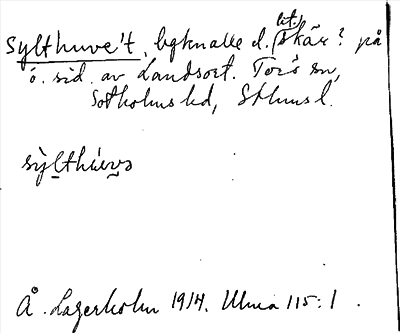 Sylthuve't, bgknalle l. litet skär? på
ö. sid. av Landsort. Torö sn,
Sotholms hd, Sthlms l.
sỳlthúvə
Å. Lagerholm 1914. Ulma 115:1.